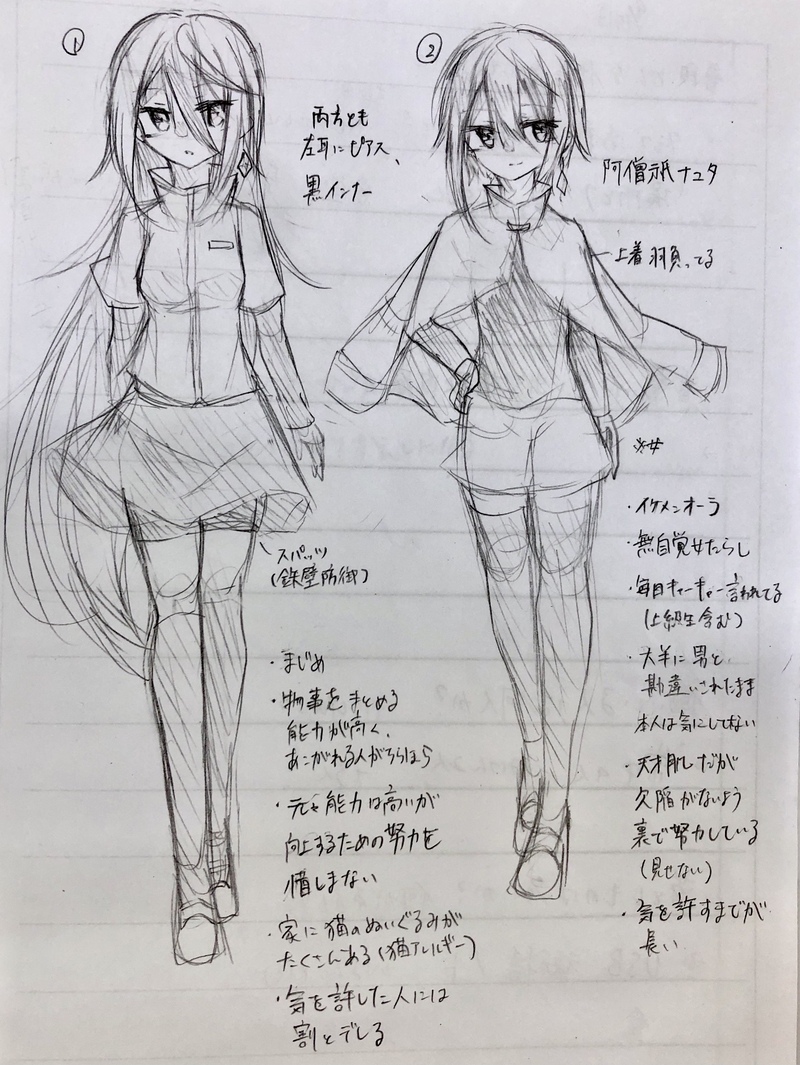 ①
両方とも
左耳にピアス、
黒インナー
スパッツ
(鉄壁防御)
・まじめ
・物事をまとめる
能力が高く、
あこがれる人がちらほら
・元々能力は高いが
向上するための努力を
惜しまない
・家に猫のぬいぐるみが
たくさんある(猫アレルギー)
・気を許した人には
割とデレる
②
阿僧祇ナユタ
上着羽負ってる
※女
・イケメンオーラ
・無自覚女たらし
・毎日キャーキャー言われてる
(上級生含む)
・大半に男と
勘違いされたまま
本人は気にしてない
・天才肌だが
欠陥がないよう
裏で努力している
(見せない)
・気を許すまでが
長い